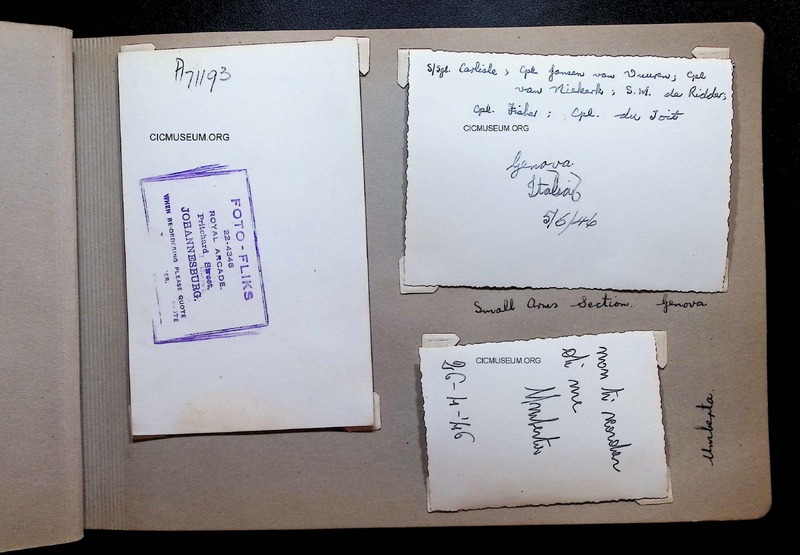 A71193
CICMUSEUM.ORG
FOTO-FLIKS
22-4346
ROYAL ARCADE.
Pritchard Street,
JOHANNESBURG.
WHEN RE-ORDERING PLEASE QUOTE
S/Sgt. Carlisle; Cpl Jansen van Vuuren; Cpl
van Niekerk; S.M. de Ridder;
Cpl. Fisher; Cpl. du Toit
CICMUSEUM.ORG
Genova
Italia
5/6/46
Small Arms Section. Genova
CICMUSEUM.ORG
non ti scordar
di me
Umberta
26-4-46
Umberta.